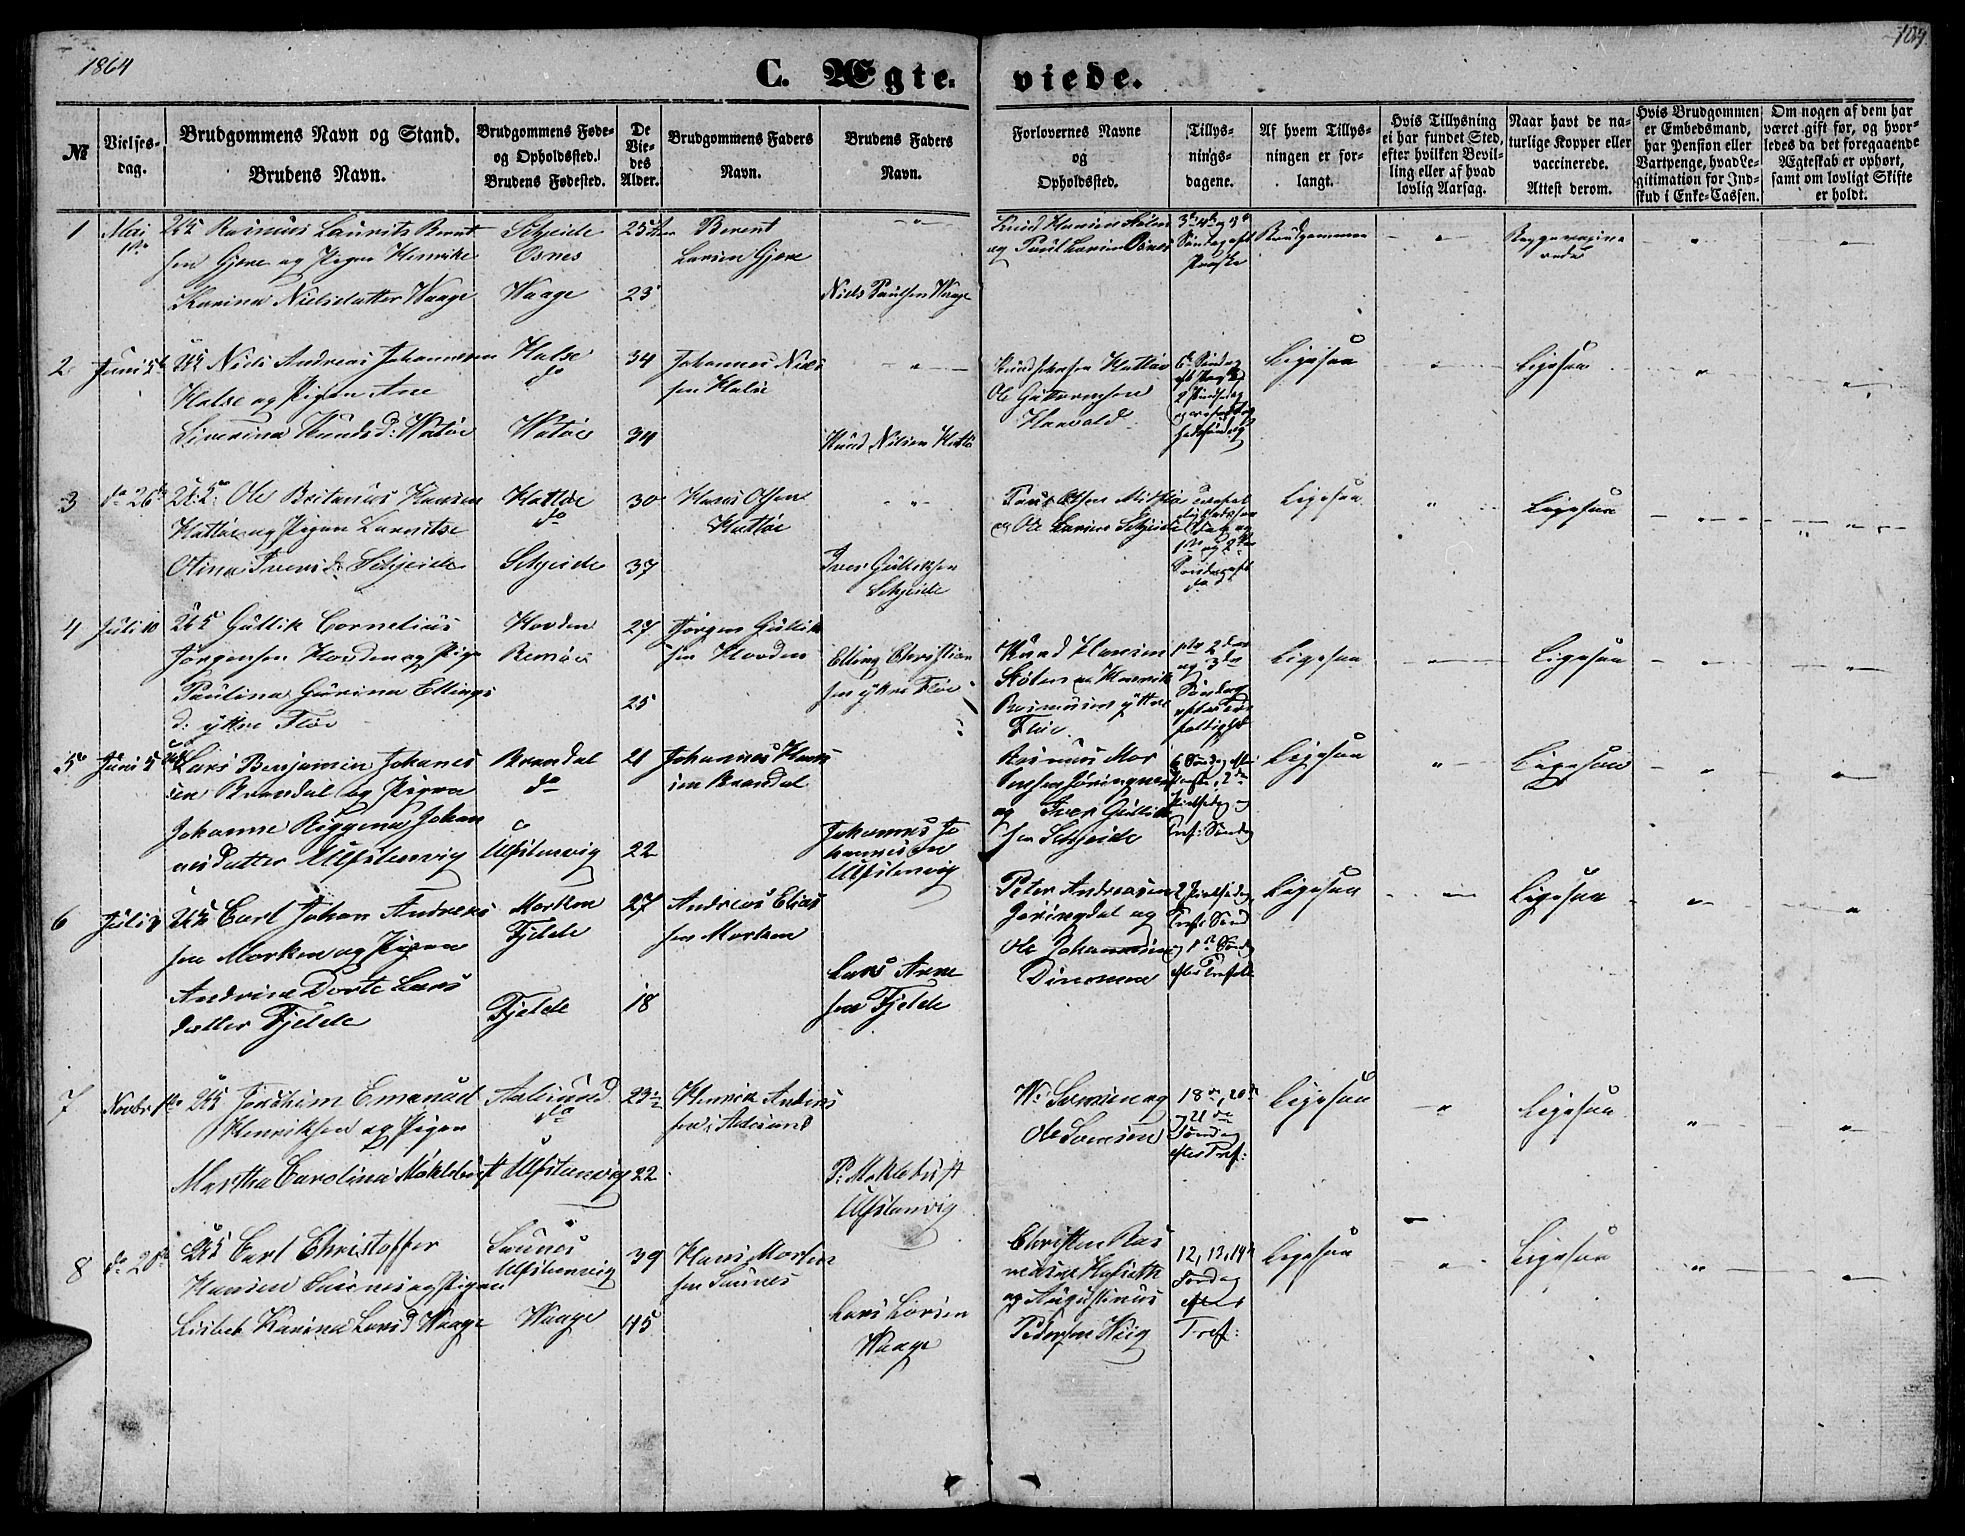 1864
104
C. Ægte-
viede.
№
Vielses-
dag.
Brudgommens Navn og Stand.
Brudens Navn.
Brudgommens Føde-
og Opholdssted.
Brudens Fødested.
De
Vie-
des
Alder.
Brudgommens Faders
Navn.
Brudens Faders
Navn.
Forlovernes Navne
og
Opholdssted.
Tillys-
nings-
dagene.
Af hvem Tillys-
ningen er for-
langt.
Hvis Tillysning
ei har fundet Sted,
efter hvilken Bevil-
ling eller af hvad
lovlig Aarsag.
Naar havt de na-
turlige Kopper eller
vaccinerede.
Attest derom.
Hvis Brudgommen
er Embedsmand,
har Pension eller
Vartpenge, hvad Le-
gitimation for Ind-
skud i Enke-Cassen.
Om nogen af dem har
været gift før, og hvor-
ledes da det foregaaende
Ægteskab er ophørt,
samt om lovligt Skifte
er holdt.
1
Mai
1ste
Rasmus Laurits Bernt
sen Gjære og Pigen Henrike
Karina Nielsdatter Waage
Schjeide
Osnes
Waage
25
23
Berent
Larsen Gjære
Niels Paulsen Waage
Knud Hansen
og Paul Larsen Osnes
Søndag eft
Paaske
Brudgommen
Begge vaccine
rede
2
Juni 5te
Niels Andreas Johannesen
Halse og Pigen Ane
Severina Knudsd: Hatøe
Halse
do
Hatøe
34
34
Johannes Niels
sen Halse
Knud Nilsen Hatlø
Ole Guttormsen
Haavald
Ligesaa
Ligesaa
3
do 26de
Ole Britanus Hansen
Hatløe og Pigen Lauritse
Otina Iversd: Schjeide
Hatløe
do
Schjeide
30
37
Hans Olsen
Hatløe
Iver Gulliksen
Schjeide
og Ole Larsen Schjeide
Ligesaa
Ligesaa
4
Juli 10
Gullik Cornelius
Jørgensen Hovden og Pige
Paulina Gurina Ellings
d: ytre Fløe
Hovden
Remøe
27
25
Jørgen Gullik
sen Hovden
Elling Christian
sen ytre Fløe
Knud Hansen
og Henrik
Rasmusen ytre
Fløe
1ste 2den
og 3de
Søndag
efter Tre
foldighed
Ligesaa
Ligesaa
5
Juni 5
Lars Benjamin Johanes
sen Brandal og Pigen
Johanne Birgena Johan
nesdatter Ulfstenvig
Brandal
do
Ulfstenvig
21
22
Johannes Hans
sen Brandal
Johannes Jo
hannessen
Ulfstenvig
Rasmus Mor
og Iver Gullik
sen Schjeide
Ligesaa
Ligesaa
6
Juli 3
Carl Johan Andreas
sen Morken og Pigen
Andrine Dorte Lars
datter Fjelde
Morken
Fjelde
Fjelde
27
18
Andreas Elias
sen Morken
Lars Arne
sen Fjelde
Peter Andreasen
Jøringdal og
Ole Johannesen
Ligesaa
Ligesaa
7
Novbr 1ste
Joachim Emanuel
Henriksen og Pigen
Martha Carolina Møklebust
Aalesund
do
Ulfstenvig
23½
22
Henrik Andreas
sen Aalesund
P: Møklebust
Ulfstenvig
W: Sørensen og
Ole Sørensen
18de, 20de
og 21de
Søndag
efter Tref:
Ligesaa
Ligesaa
8
do 20de
Carl Christoffer
Hansen Saunes og Pigen
Lisbet Karina Larsd Waage
Saunes
Ulfstenvig
Waage
39
45
Hans Morten
sen Saunes
Lars Larsen
Waage
Christen Ras
og Augustinus
Pedersen Wiig
12, 13, 14de
Søndag
efter
Tref:
Ligesaa
Ligesaa